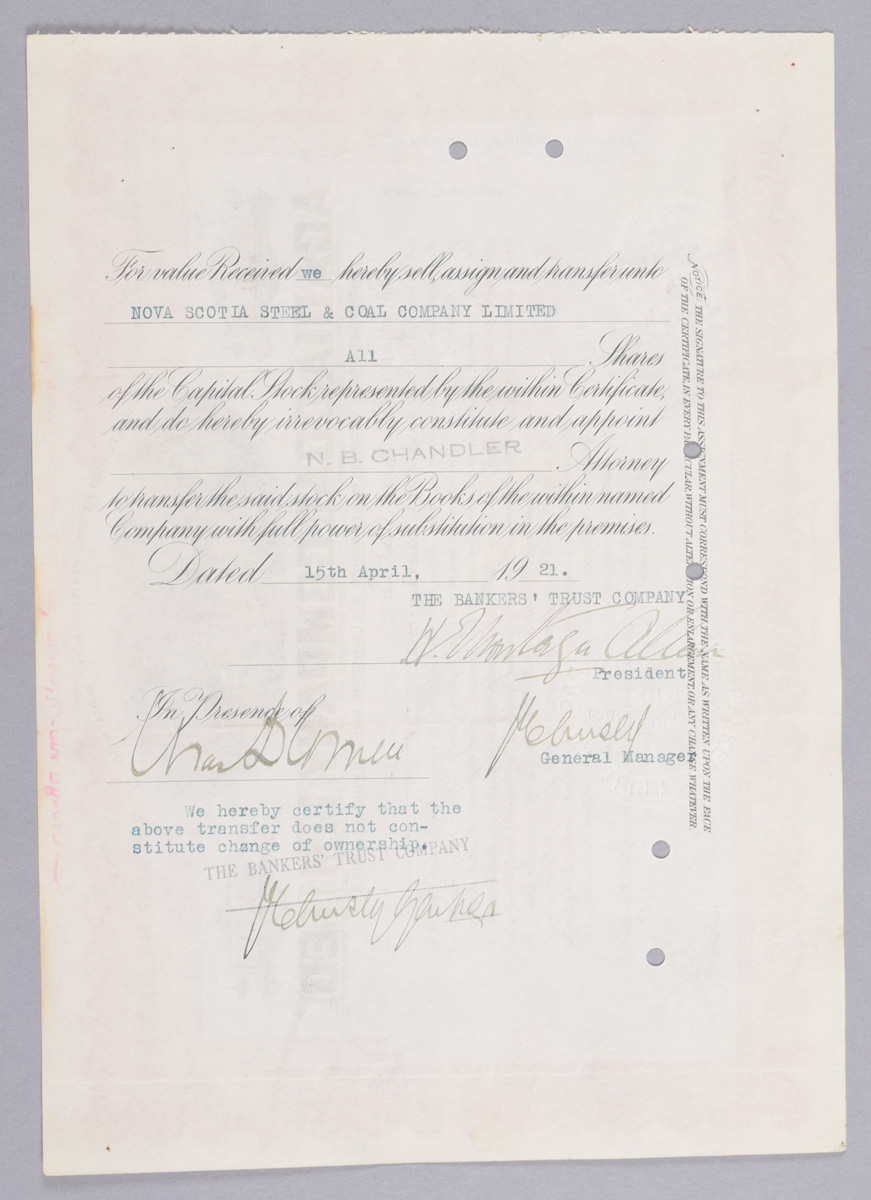 For value Received we hereby sell, assign and transfer unto
NOVA SCOTIA STEEL & COAL COMPANY LIMITED
All Shares
of the Capital Stock represented by the within Certificate,
and do hereby irrevocably constitute and appoint
N. B. CHANDLER Attorney
to transfer the said stock on the Books of the within named
Company with full power of substitution in the premises.
Dated 15th April, 1921.
THE BANKERS' TRUST COMPANY
H. Montagu Allan
President
In Presence of
General Manager
We hereby certify that the
above transfer does not con-
stitute change of ownership.
THE BANKERS' TRUST COMPANY
NOTICE. THE SIGNATURE TO THIS ASSIGNMENT MUST CORRESPOND WITH THE NAME AS WRITTEN UPON THE FACE
OF THE CERTIFICATE, IN EVERY PARTICULAR WITHOUT ALTERATION OR ENLARGEMENT, OR ANY CHANGE WHATEVER